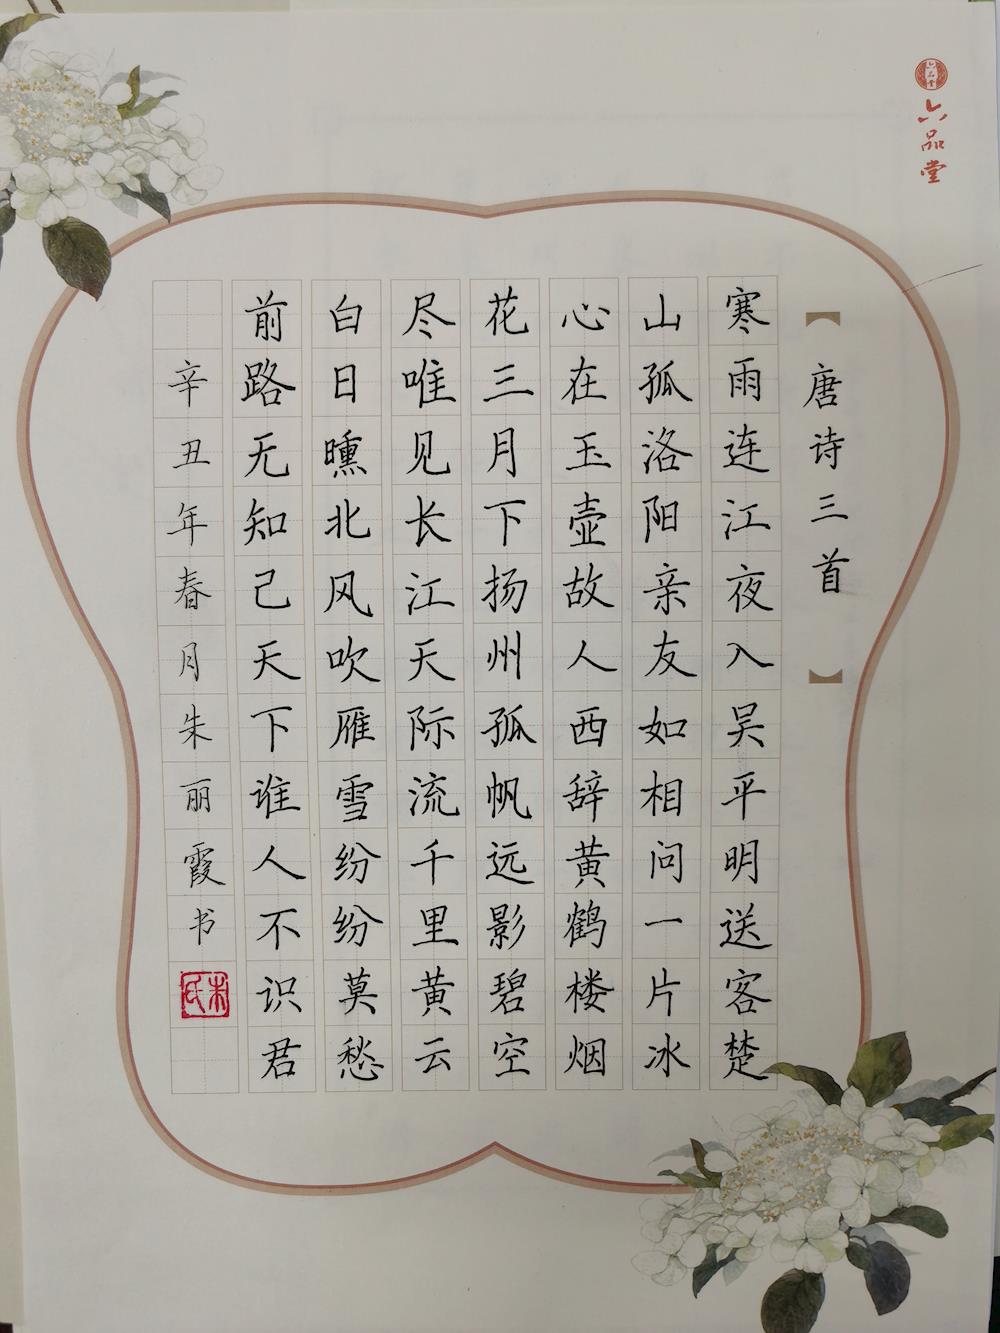 六品堂
六品堂
【唐诗三首】
寒雨连江夜入吴平明送客楚
山孤洛阳亲友如相问一片冰
心在玉壶故人西辞黄鹤楼烟
花三月下扬州孤帆远影碧空
尽唯见长江天际流千里黄云
白日曛北风吹雁雪纷纷莫愁
前路无知己天下谁人不识君
辛丑年春月朱丽霞书
朱氏